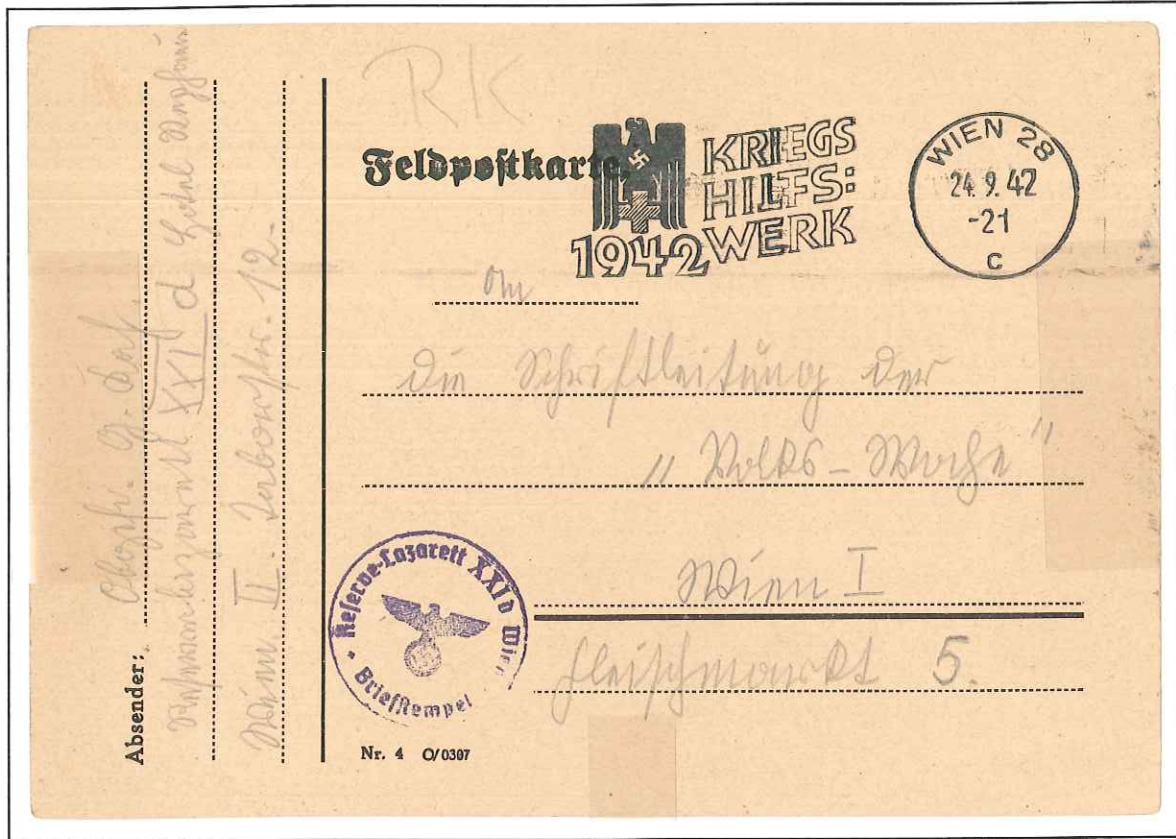 RK
Feldpostkarte
1942
KRIEGS
HILFS:
WERK
WIEN 28
24.9.42
-21
c
An
die Schriftleitung der
"Volks-Woche"
Wien I
Fleischmarkt 5.
Reserve-Lazarett XXI d Wien
Briefstempel
Nr. 4 O/0307
Absender:
Obergfr. G.
XXI d Hotel
Wien II. Taborstr. 12.